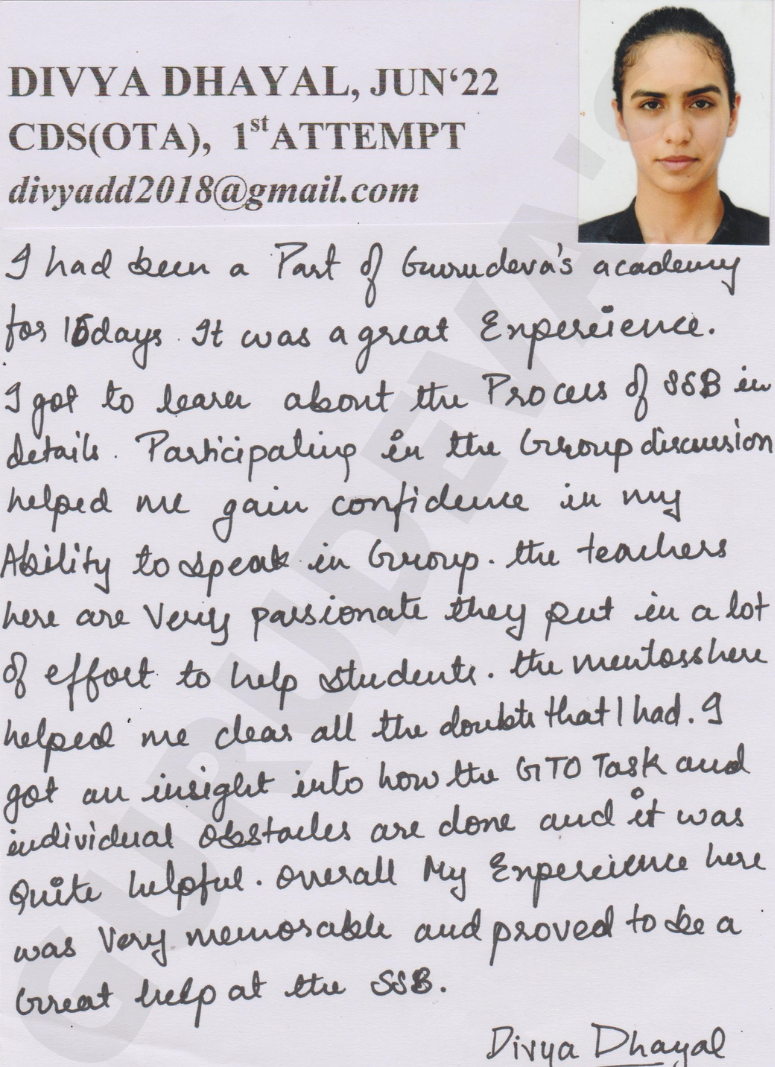 DIVYA DHAYAL, JUN‘22
CDS(OTA), 1st ATTEMPT
divyadd2018@gmail.com
I had been a Part of Gurudeva's academy
for 15days. It was a great Experience.
I got to learn about the Process of SSB in
details. Participating in the Group discussion
helped me gain confidence in my
Ability to speak in Group. the teachers
here are Very passionate they put in a lot
of effort to help students. the mentors here
helped me clear all the doubts that I had. I
got an insight into how the GTO Task and
individual obstacles are done and it was
Quite helpful. overall My Experience here
was Very memorable and proved to be a
Great help at the SSB.
Divya Dhayal
GURUDEVA'S